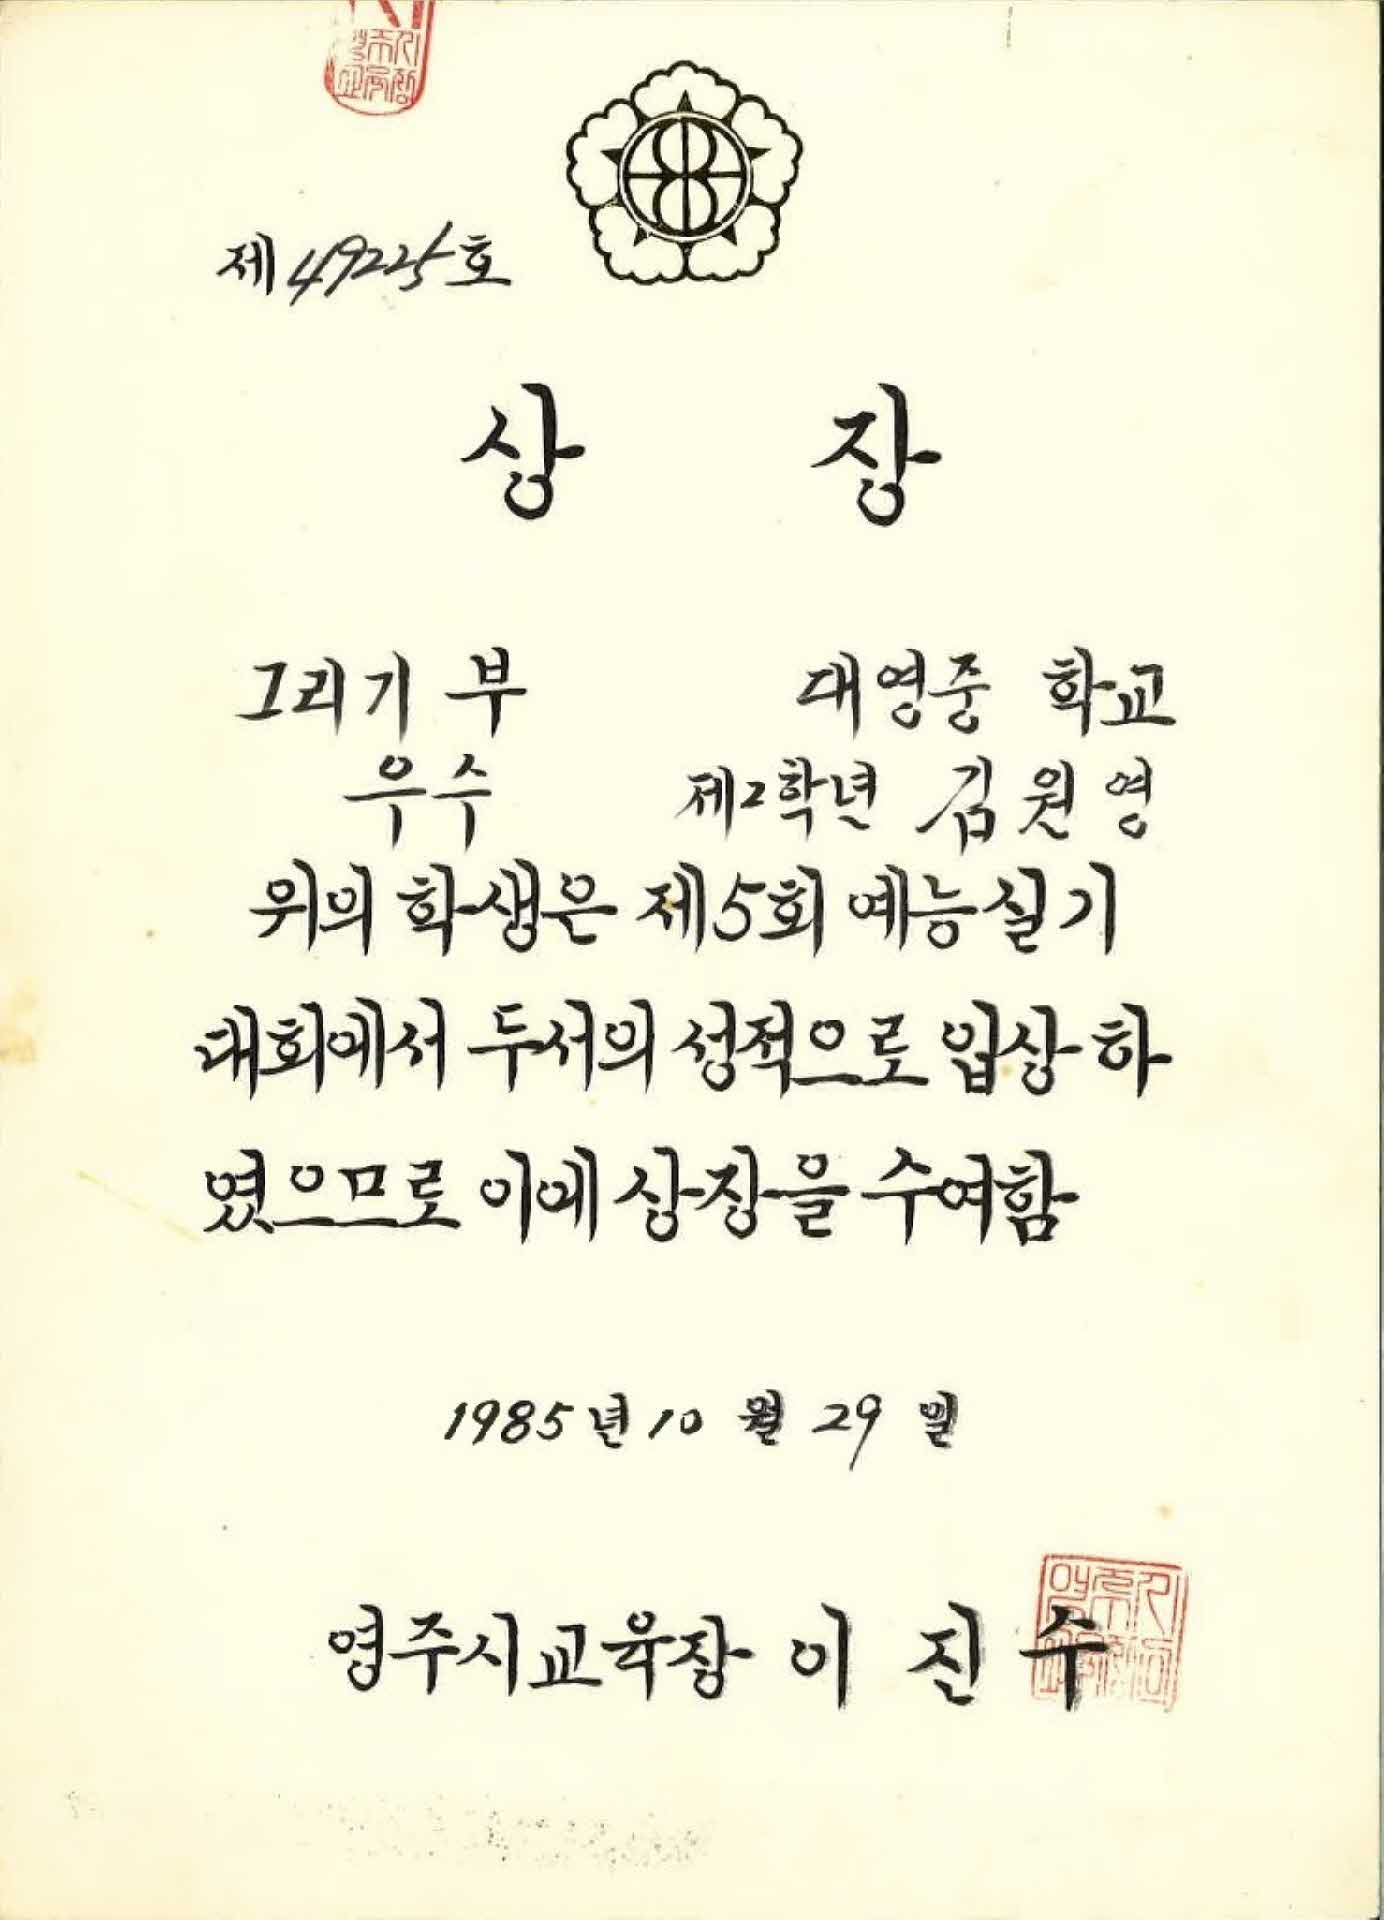 제49225호
상 장
그리기 부 대영중 학교
우수 제2학년 김원영
위의 학생은 제5회 예능실기
대회에서 두서의 성적으로 입상하
였으므로 이에 상장을 수여함
1985년 10월 29일
영주시교육장 이 진 수